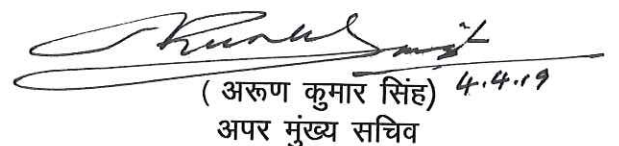 ( अरूण कुमार सिंह) 4.4.19
अपर मुंख्य सचिव